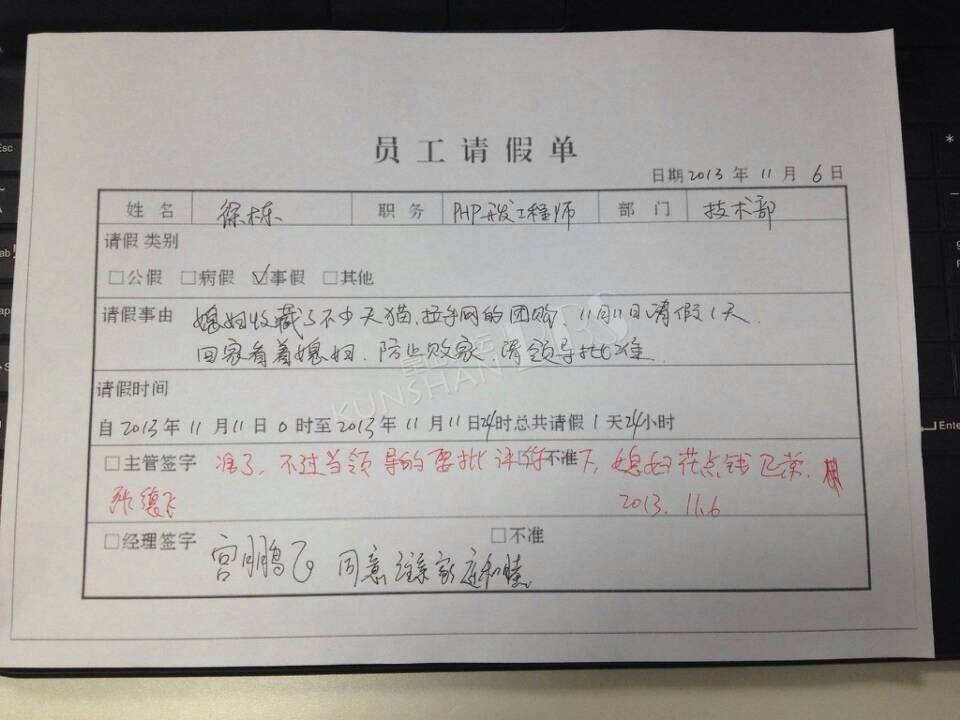 员工请假单
日期2013年11月6日
姓名 徐栋 职务 PHP开发工程师 部门 技术部
请假 类别
□公假 □病假 ☑事假 □其他
请假事由 媳妇收藏了不少天猫、拉手网的团购、11月11日请假1天
回家看着媳妇、防止败家、请领导批准
KUNSHAN
请假时间
自2013年11月11日0时至2013年11月11日24时总共请假1天24小时
□主管签字 准了、不过当领导的要批评你 □不准 下,媳妇花点钱
张德飞 2013.11.6
□经理签字 □不准
宫鹏飞 同意 家庭和睦。